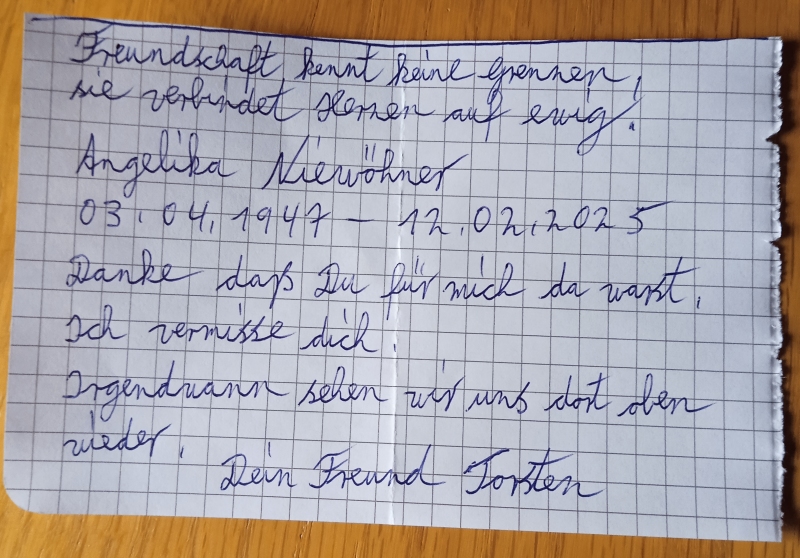 Freundschaft kennt keine Grenzen,
sie verbindet Herzen auf ewig!
Angelika Niewöhner
03.04.1947 - 12.02.2025
Danke daß Du für mich da warst.
Ich vermisse dich!
Irgendwann sehen wir uns dort oben
wieder.
Dein Freund Torsten